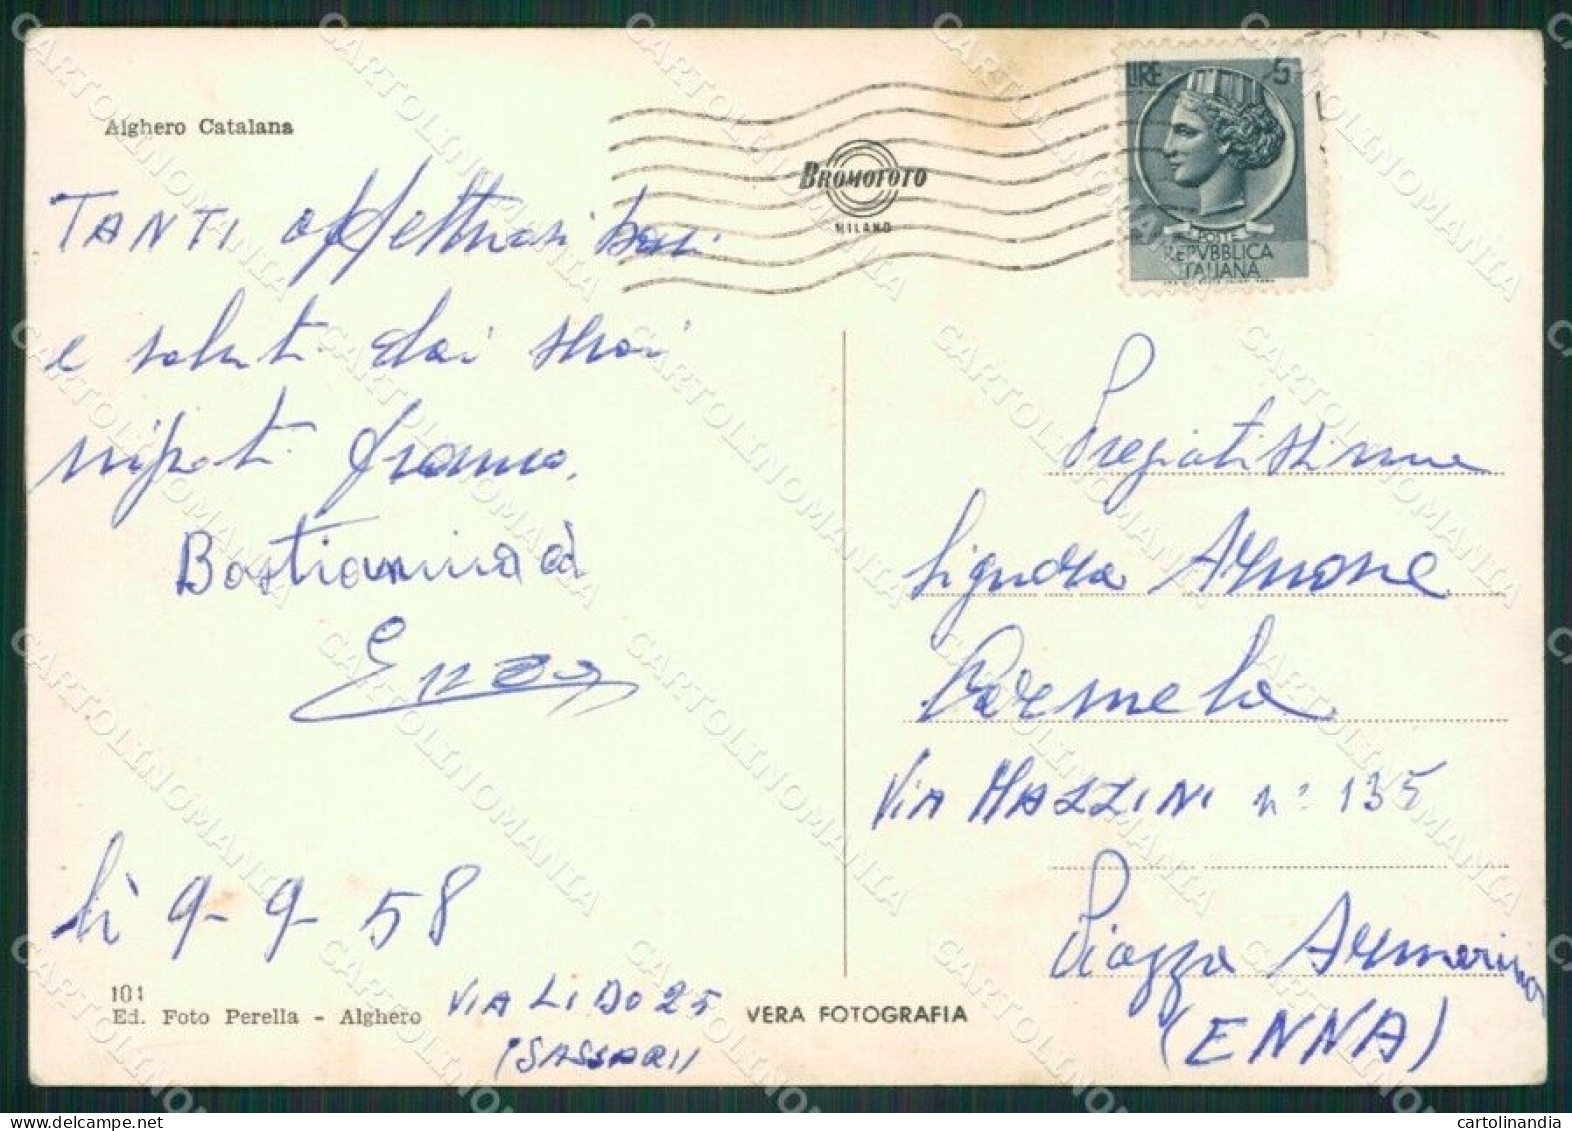 Alghero Catalana
TANTI affettuosi baci
e saluti dai tuoi
nipoti Franco,
Bastianina ed
Enzo
lì 9-9-58
101
Ed. Foto Perella - Alghero
VIA LIDO 25
(SASSARI)
VERA FOTOGRAFIA
BROMOFOTO
MILANO
LIRE 5
POSTE
REPVBBLICA
ITALIANA
Pregiatissima
Signora Arnone
Carmela
VIA MAZZINI n° 135
Piazza Armerina
(ENNA)
CARTOLINOMANIA
cartolinandia